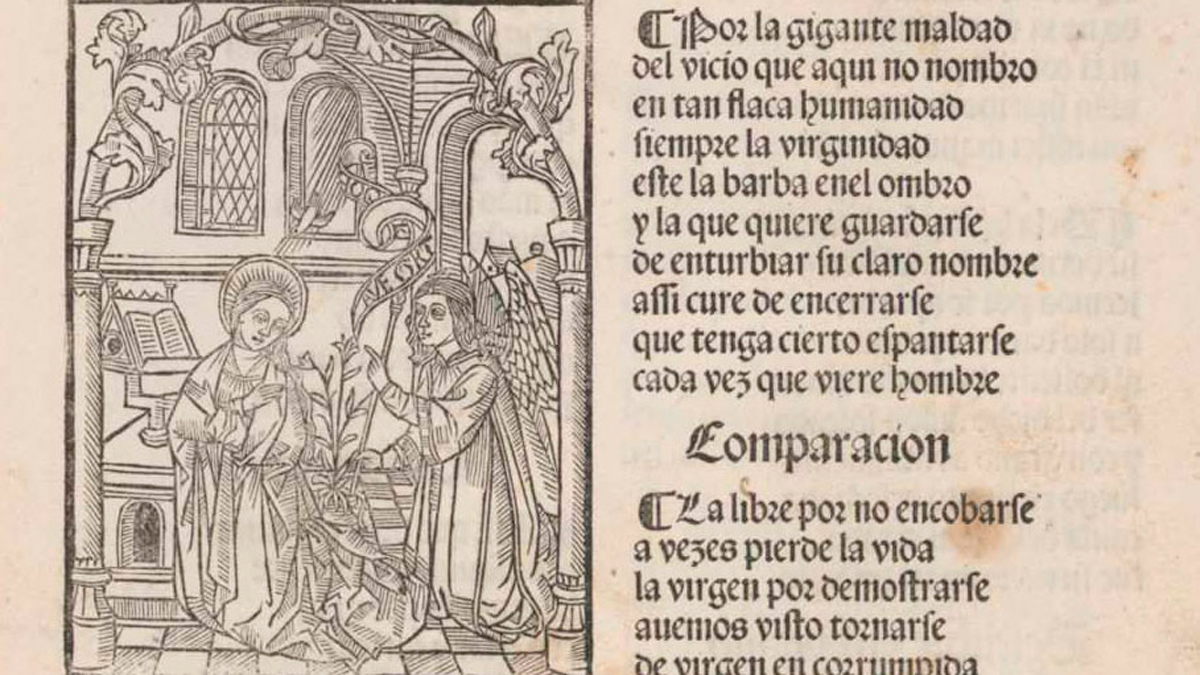 ¶Por la gigante maldad
del vicio que aqui no nombro
en tan flaca humanidad
ſiempre la virginidad
eſte la barba enel ombro
y la que quiere guardarſe
de enturbiar ſu claro nombre
aſſi cure de encerrarſe
que tenga cierto eſpantarſe
cada vez que viere hombre
Comparacion
¶La libre por no encobarſe
a vezes pierde la vida
la virgen por demoſtrarſe
auemos viſto tornarſe
de virgen en corrumpida